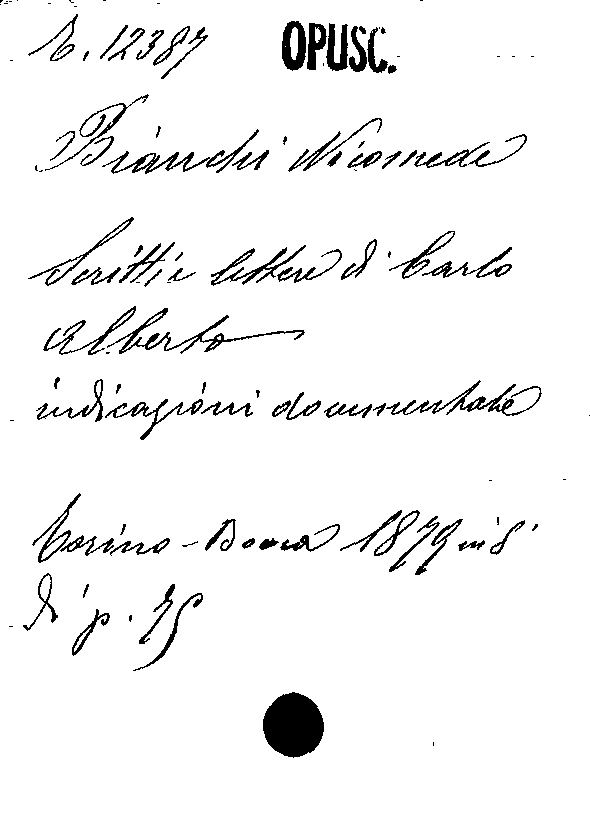 E. 12387 OPUSC.
Bianchi Nicomede
Scritti e lettere di Carlo
Alberto
indicazioni documentate
Torino - Bocca 1879 in 8°
di p. 75